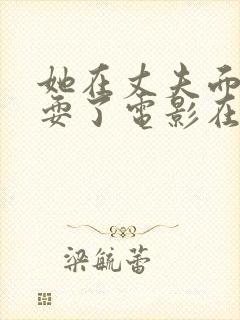 她在丈夫而
耍了电影在
梁毓蕾